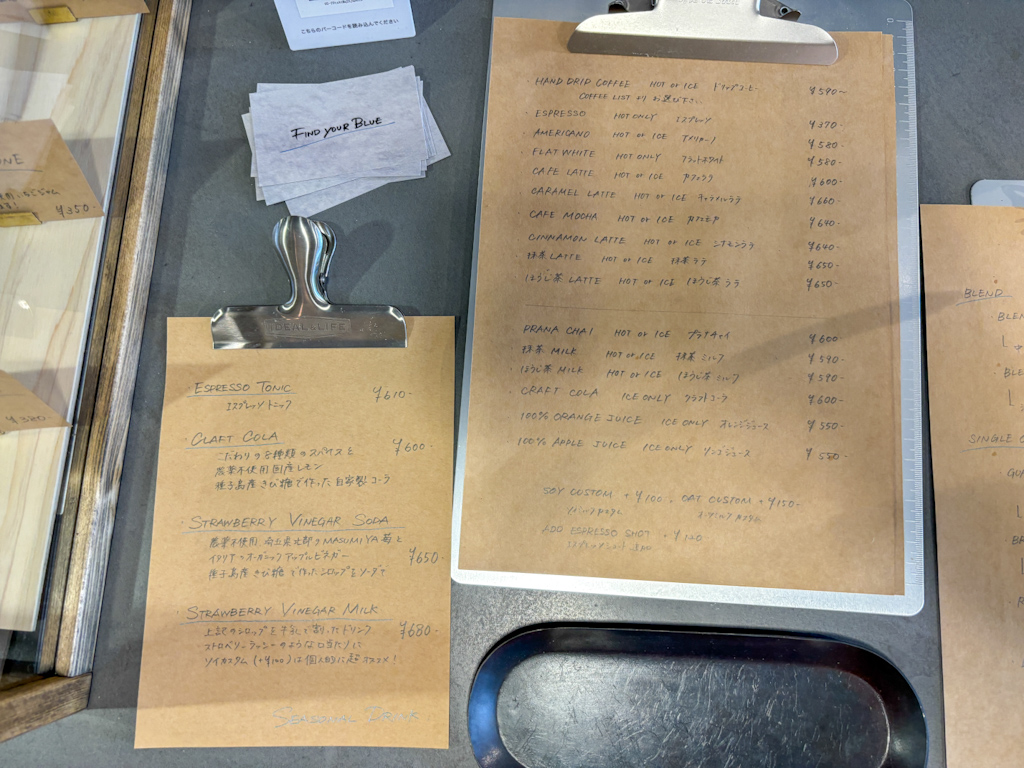 こちらのバーコードを読み込んでください
FIND YOUR BLUE
¥350-
¥380-
IDEAL&LIFE
ESPRESSO TONIC ¥610-
エスプレッソトニック
CLAFT COLA ¥600-
こだわりの8種類のスパイスと
農薬不使用国産レモン
種子島産きび糖で作った自家製コーラ
STRAWBERRY VINEGAR SODA
農薬不使用 埼玉県北部のMASUMIYA苺と
イタリアンオーガニックアップルビネガー ¥650-
種子島産きび糖で作ったシロップをソーダで
STRAWBERRY VINEGAR MILK
上記のシロップを牛乳で割ったドリンク ¥680-
ストロベリーラッシーのような口当たりに
ソイカスタム (+¥100) は個人的に超オススメ!
SEASONAL DRINK
HAND DRIP COFFEE HOT or ICE ドリップコーヒー ¥590~
COFFEE LIST より お選び下さい
ESPRESSO HOT ONLY エスプレッソ ¥370-
AMERICANO HOT or ICE アメリカーノ ¥580-
FLAT WHITE HOT ONLY フラットホワイト ¥580-
CAFE LATTE HOT or ICE カフェラテ ¥600-
CARAMEL LATTE HOT or ICE キャラメルラテ ¥660-
CAFE MOCHA HOT or ICE カフェモカ ¥640-
CINNAMON LATTE HOT or ICE シナモンラテ ¥640-
抹茶 LATTE HOT or ICE 抹茶ラテ ¥650-
ほうじ茶 LATTE HOT or ICE ほうじ茶ラテ ¥650-
PRANA CHAI HOT or ICE プラナチャイ ¥600-
抹茶 MILK HOT or ICE 抹茶ミルク ¥590-
ほうじ茶 MILK HOT or ICE ほうじ茶ミルク ¥590-
CRAFT COLA ICE ONLY クラフトコーラ ¥600-
100% ORANGE JUICE ICE ONLY オレンジジュース ¥550-
100% APPLE JUICE ICE ONLY リンゴジュース ¥550-
SOY CUSTOM +¥100- OAT CUSTOM +¥150-
ソイミルクカスタム オーツミルクカスタム
ADD ESPRESSO SHOT +¥120
BLEND
SINGLE